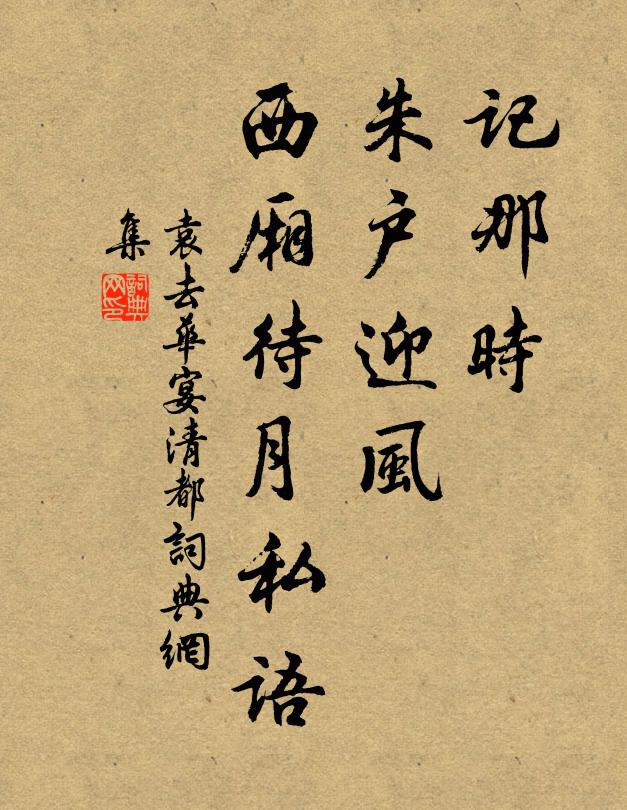 記那時
朱户迎風
西廂待月私語
袁去華宴清都詞典網
集
詞典
网印